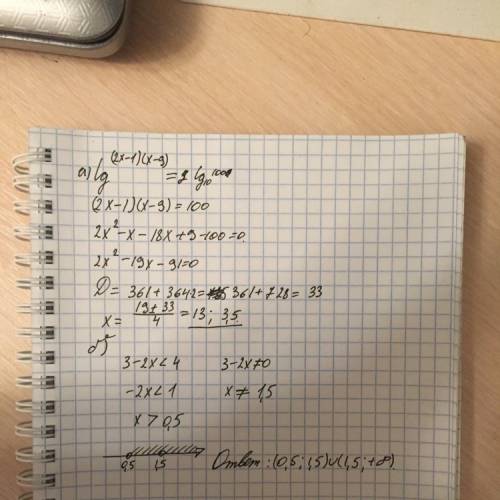 а) lg (2x-1)(x-9) = lg₁₀ 100
(2x-1)(x-9) = 100
2x²-x-18x+9-100=0
2x²-19x-91=0
D = 361+364·2= 361+728= 33
x = (19±33)/4 = 13; 3,5
б)
3-2x<4 3-2x≠0
-2x<1 x≠1,5
x>0,5
0,5 1,5 Ответ: (0,5;1,5)∪(1,5;+∞)